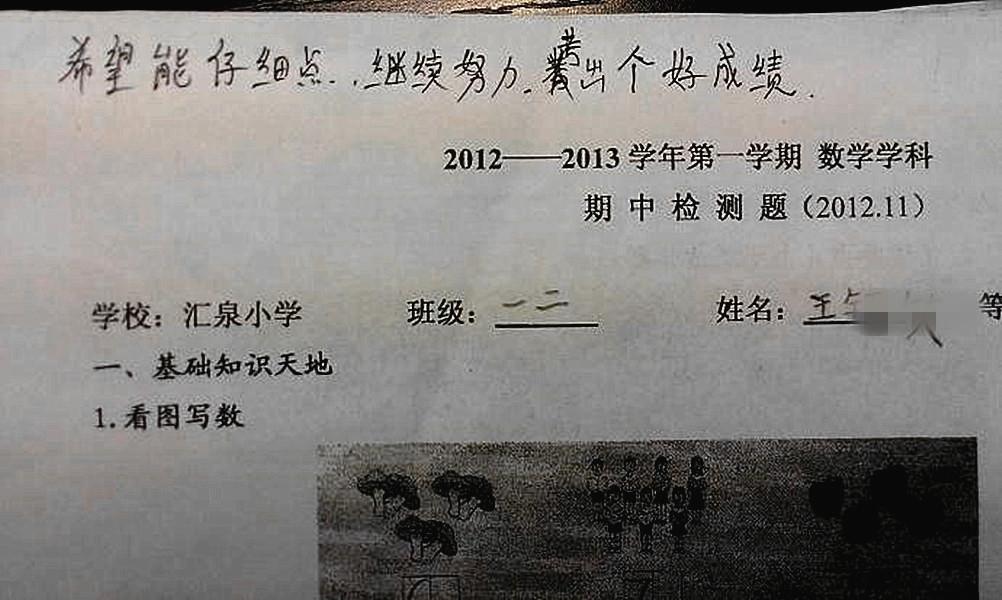 希望能仔细点.,继续努力.考出个好成绩.
2012——2013学年第一学期 数学学科
期 中 检 测 题（2012.11）
学校：汇泉小学 班级：一二 姓名：王 等
一、基础知识天地
1.看图写数
7